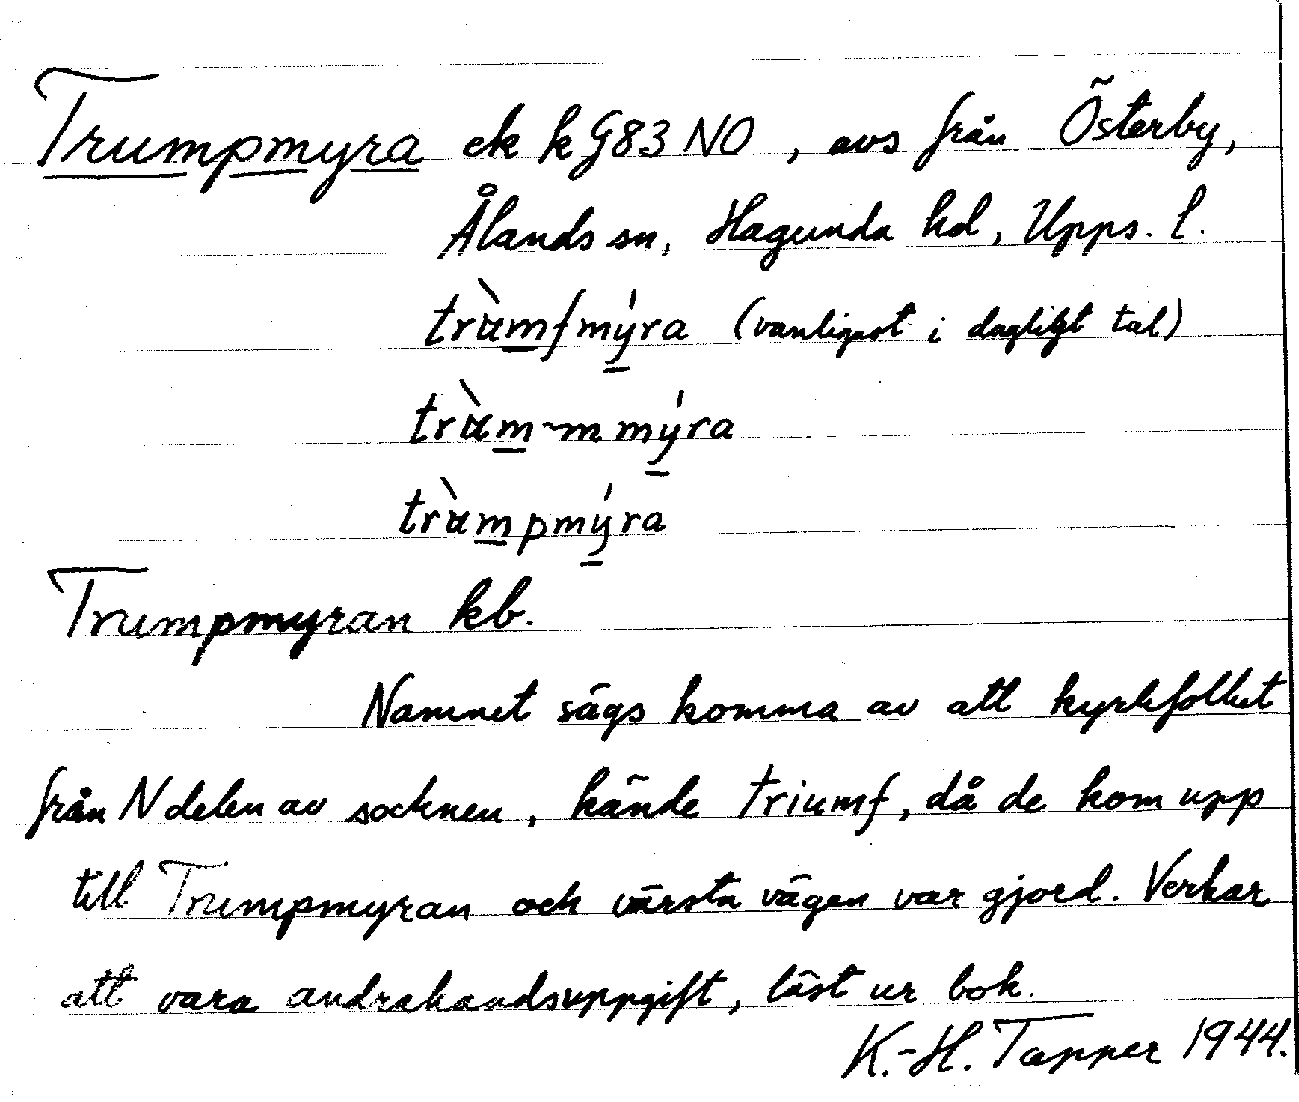 Trumpmyra ek k G83 NO, avs från Österby,
Ålands sn, Hagunda hd, Upps. l.
trùmfmýra (vanligast i dagligt tal)
trùm-m mýra
trùmpmýra
Trumpmyran kb.
Namnet sägs komma av att kyrkfolket
från N delen av socknen, kände triumf, då de kom upp
till Trumpmyran och värsta vägen var gjord. Verkar
att vara andrahandsuppgift, läst ur bok.
K.-H. Tapper 1944.